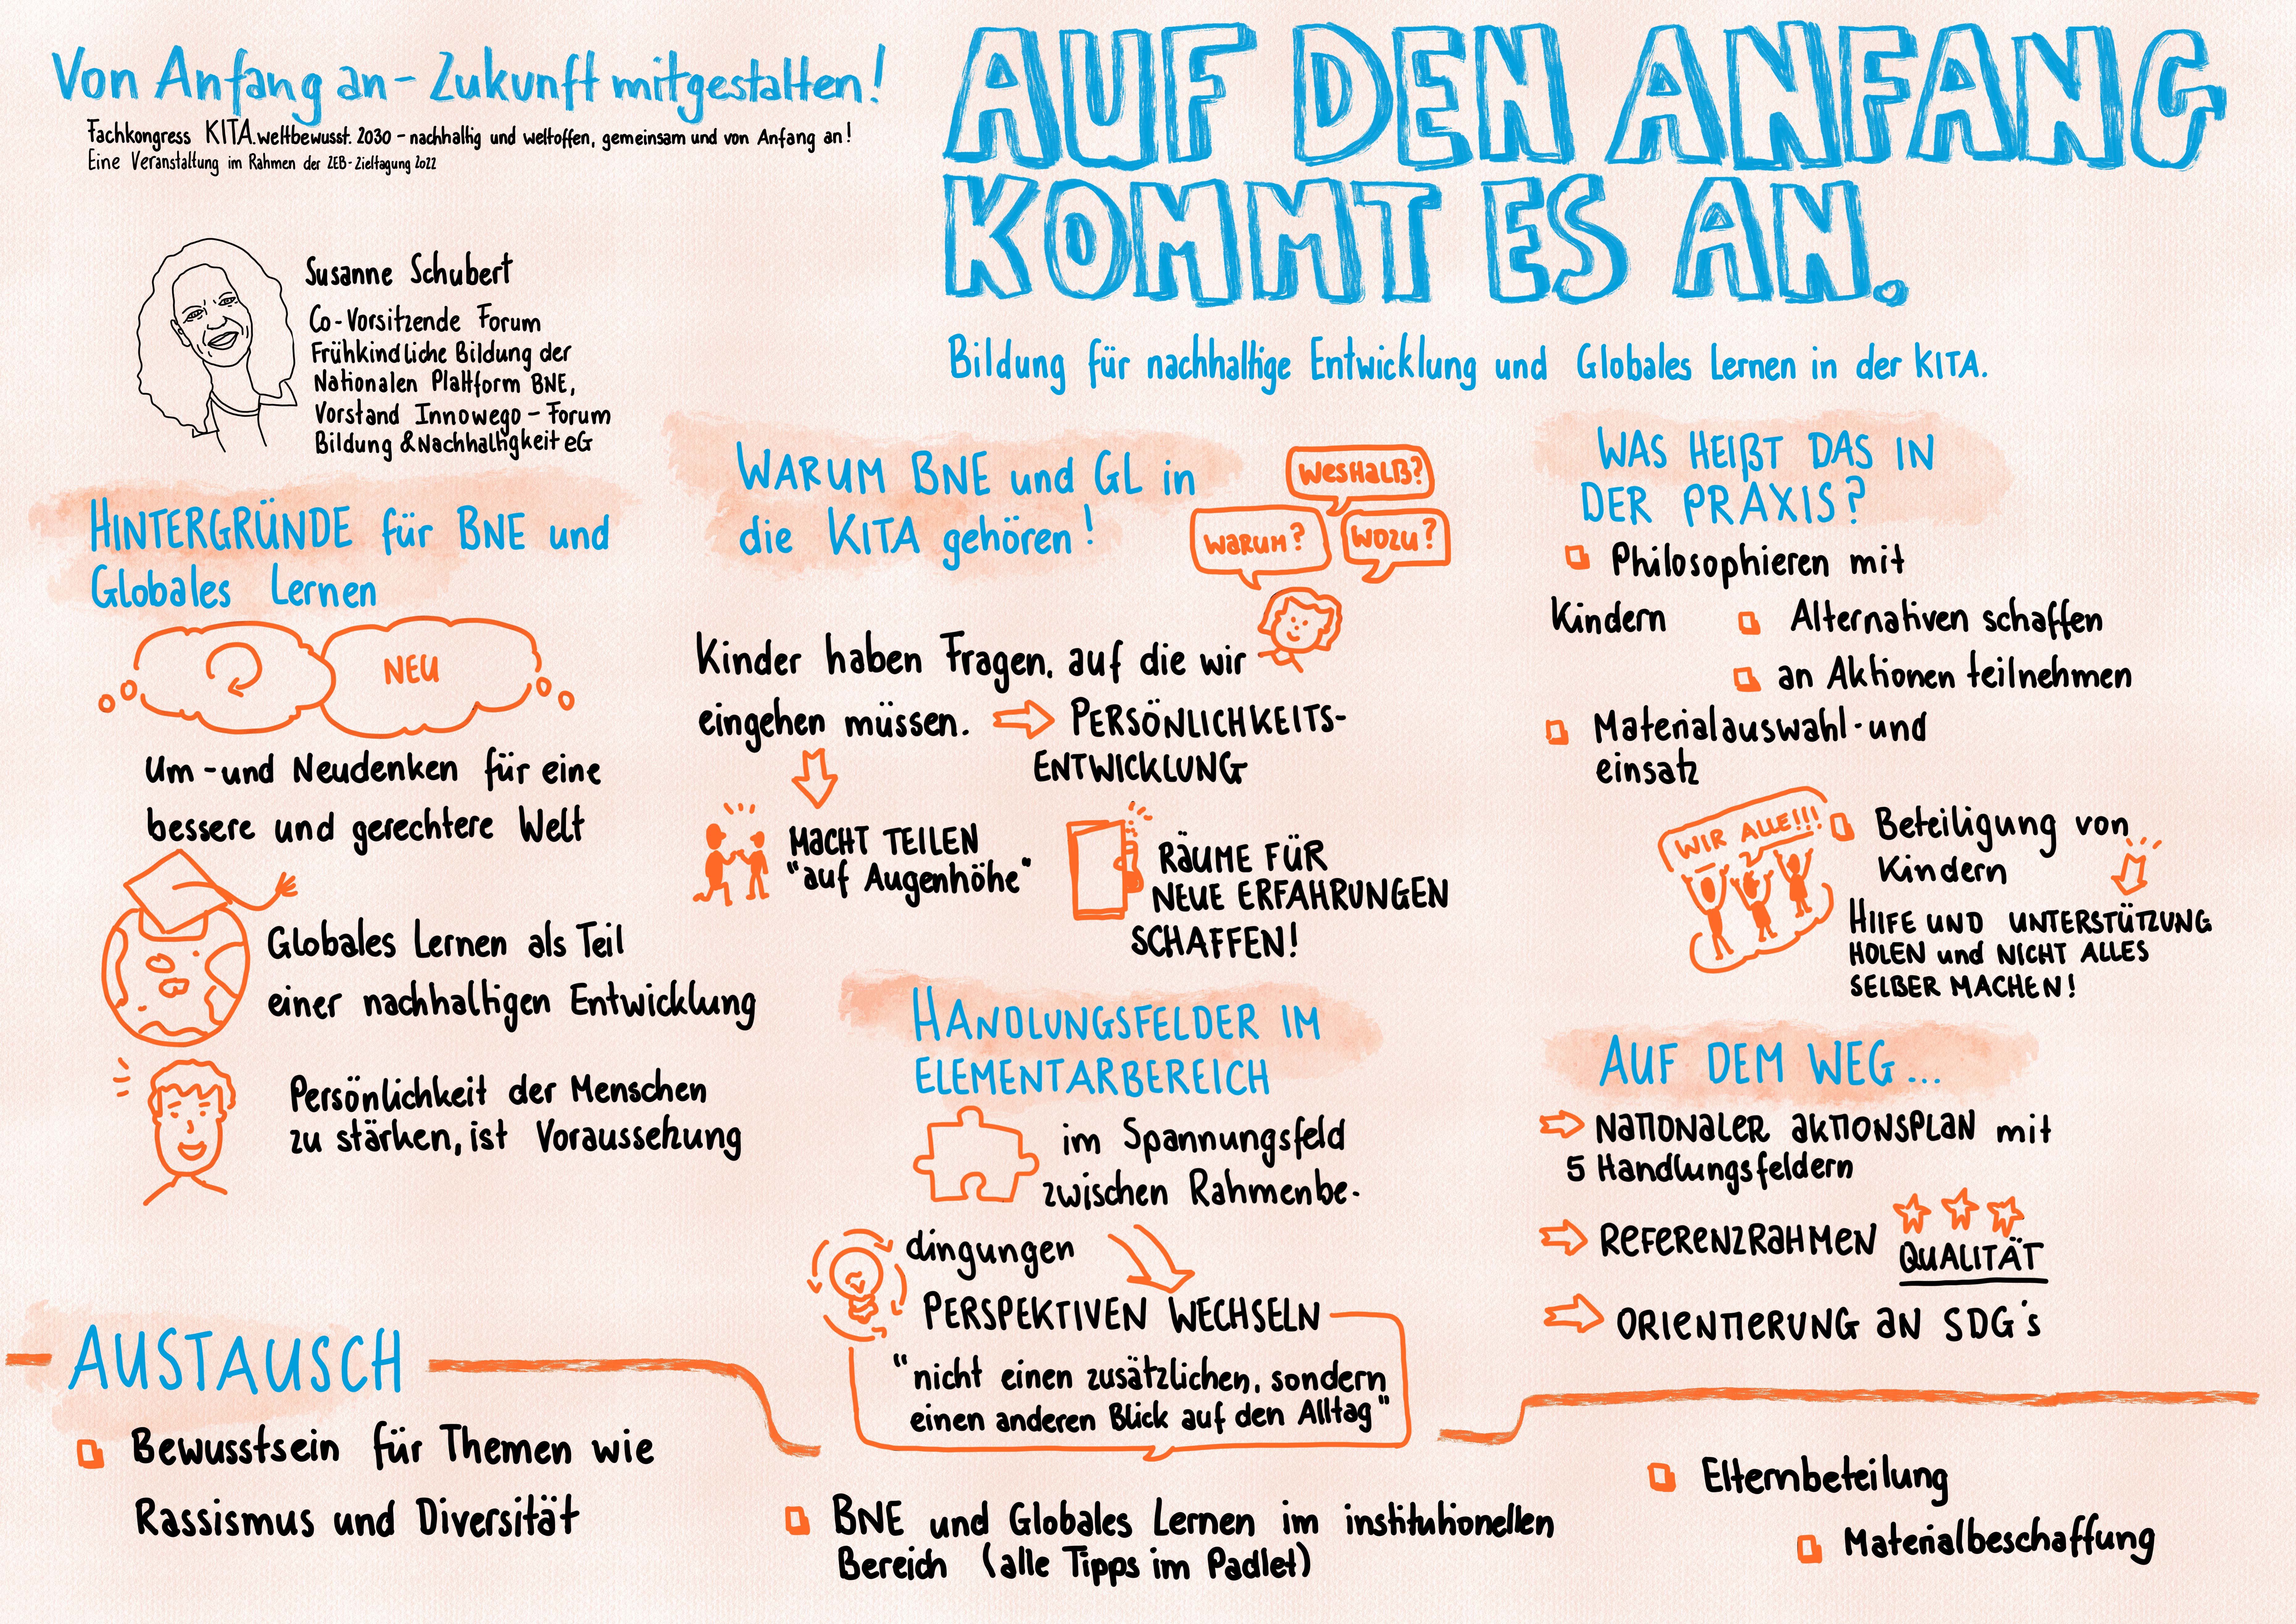 Von Anfang an - Zukunft mitgestalten!
Fachkongress KITA.weltbewusst. 2030 - nachhaltig und weltoffen, gemeinsam und von Anfang an!
Eine Veranstaltung im Rahmen der ZEB-Zieltagung 2022
AUF DEN ANFANG
KOMMT ES AN.
Bildung für nachhaltige Entwicklung und Globales Lernen in der KITA.
Susanne Schubert
Co-Vorsitzende Forum
Frühkindliche Bildung der
Nationalen Plattform BNE,
Vorstand Innowego - Forum
Bildung & Nachhaltigkeit eG
HINTERGRÜNDE für BNE und
Globales Lernen
NEU
Um- und Neudenken für eine
bessere und gerechtere Welt
Globales Lernen als Teil
einer nachhaltigen Entwicklung
Persönlichkeit der Menschen
zu stärken, ist Voraussetzung
WARUM BNE und GL in
die KITA gehören!
WESHALB?
WARUM?
WOZU?
Kinder haben Fragen, auf die wir
eingehen müssen.
PERSÖNLICHKEITS-
ENTWICKLUNG
MACHT TEILEN
"auf Augenhöhe"
RÄUME FÜR
NEUE ERFAHRUNGEN
SCHAFFEN!
HANDLUNGSFELDER IM
ELEMENTARBEREICH
im Spannungsfeld
zwischen Rahmenbe-
dingungen
PERSPEKTIVEN WECHSELN
"nicht einen zusätzlichen, sondern
einen anderen Blick auf den Alltag"
WAS HEIßT DAS IN
DER PRAXIS?
Philosophieren mit
Kindern
Alternativen schaffen
an Aktionen teilnehmen
Materialauswahl- und
einsatz
WIR ALLE!!!
Beteiligung von
Kindern
HILFE UND UNTERSTÜTZUNG
HOLEN und NICHT ALLES
SELBER MACHEN!
AUF DEM WEG...
NATIONALER AKTIONSPLAN mit
5 Handlungsfeldern
REFERENZRAHMEN
QUALITÄT
ORIENTIERUNG AN SDG's
AUSTAUSCH
Bewusstsein für Themen wie
Rassismus und Diversität
BNE und Globales Lernen im institutionellen
Bereich (alle Tipps im Padlet)
Elternbeteilung
Materialbeschaffung